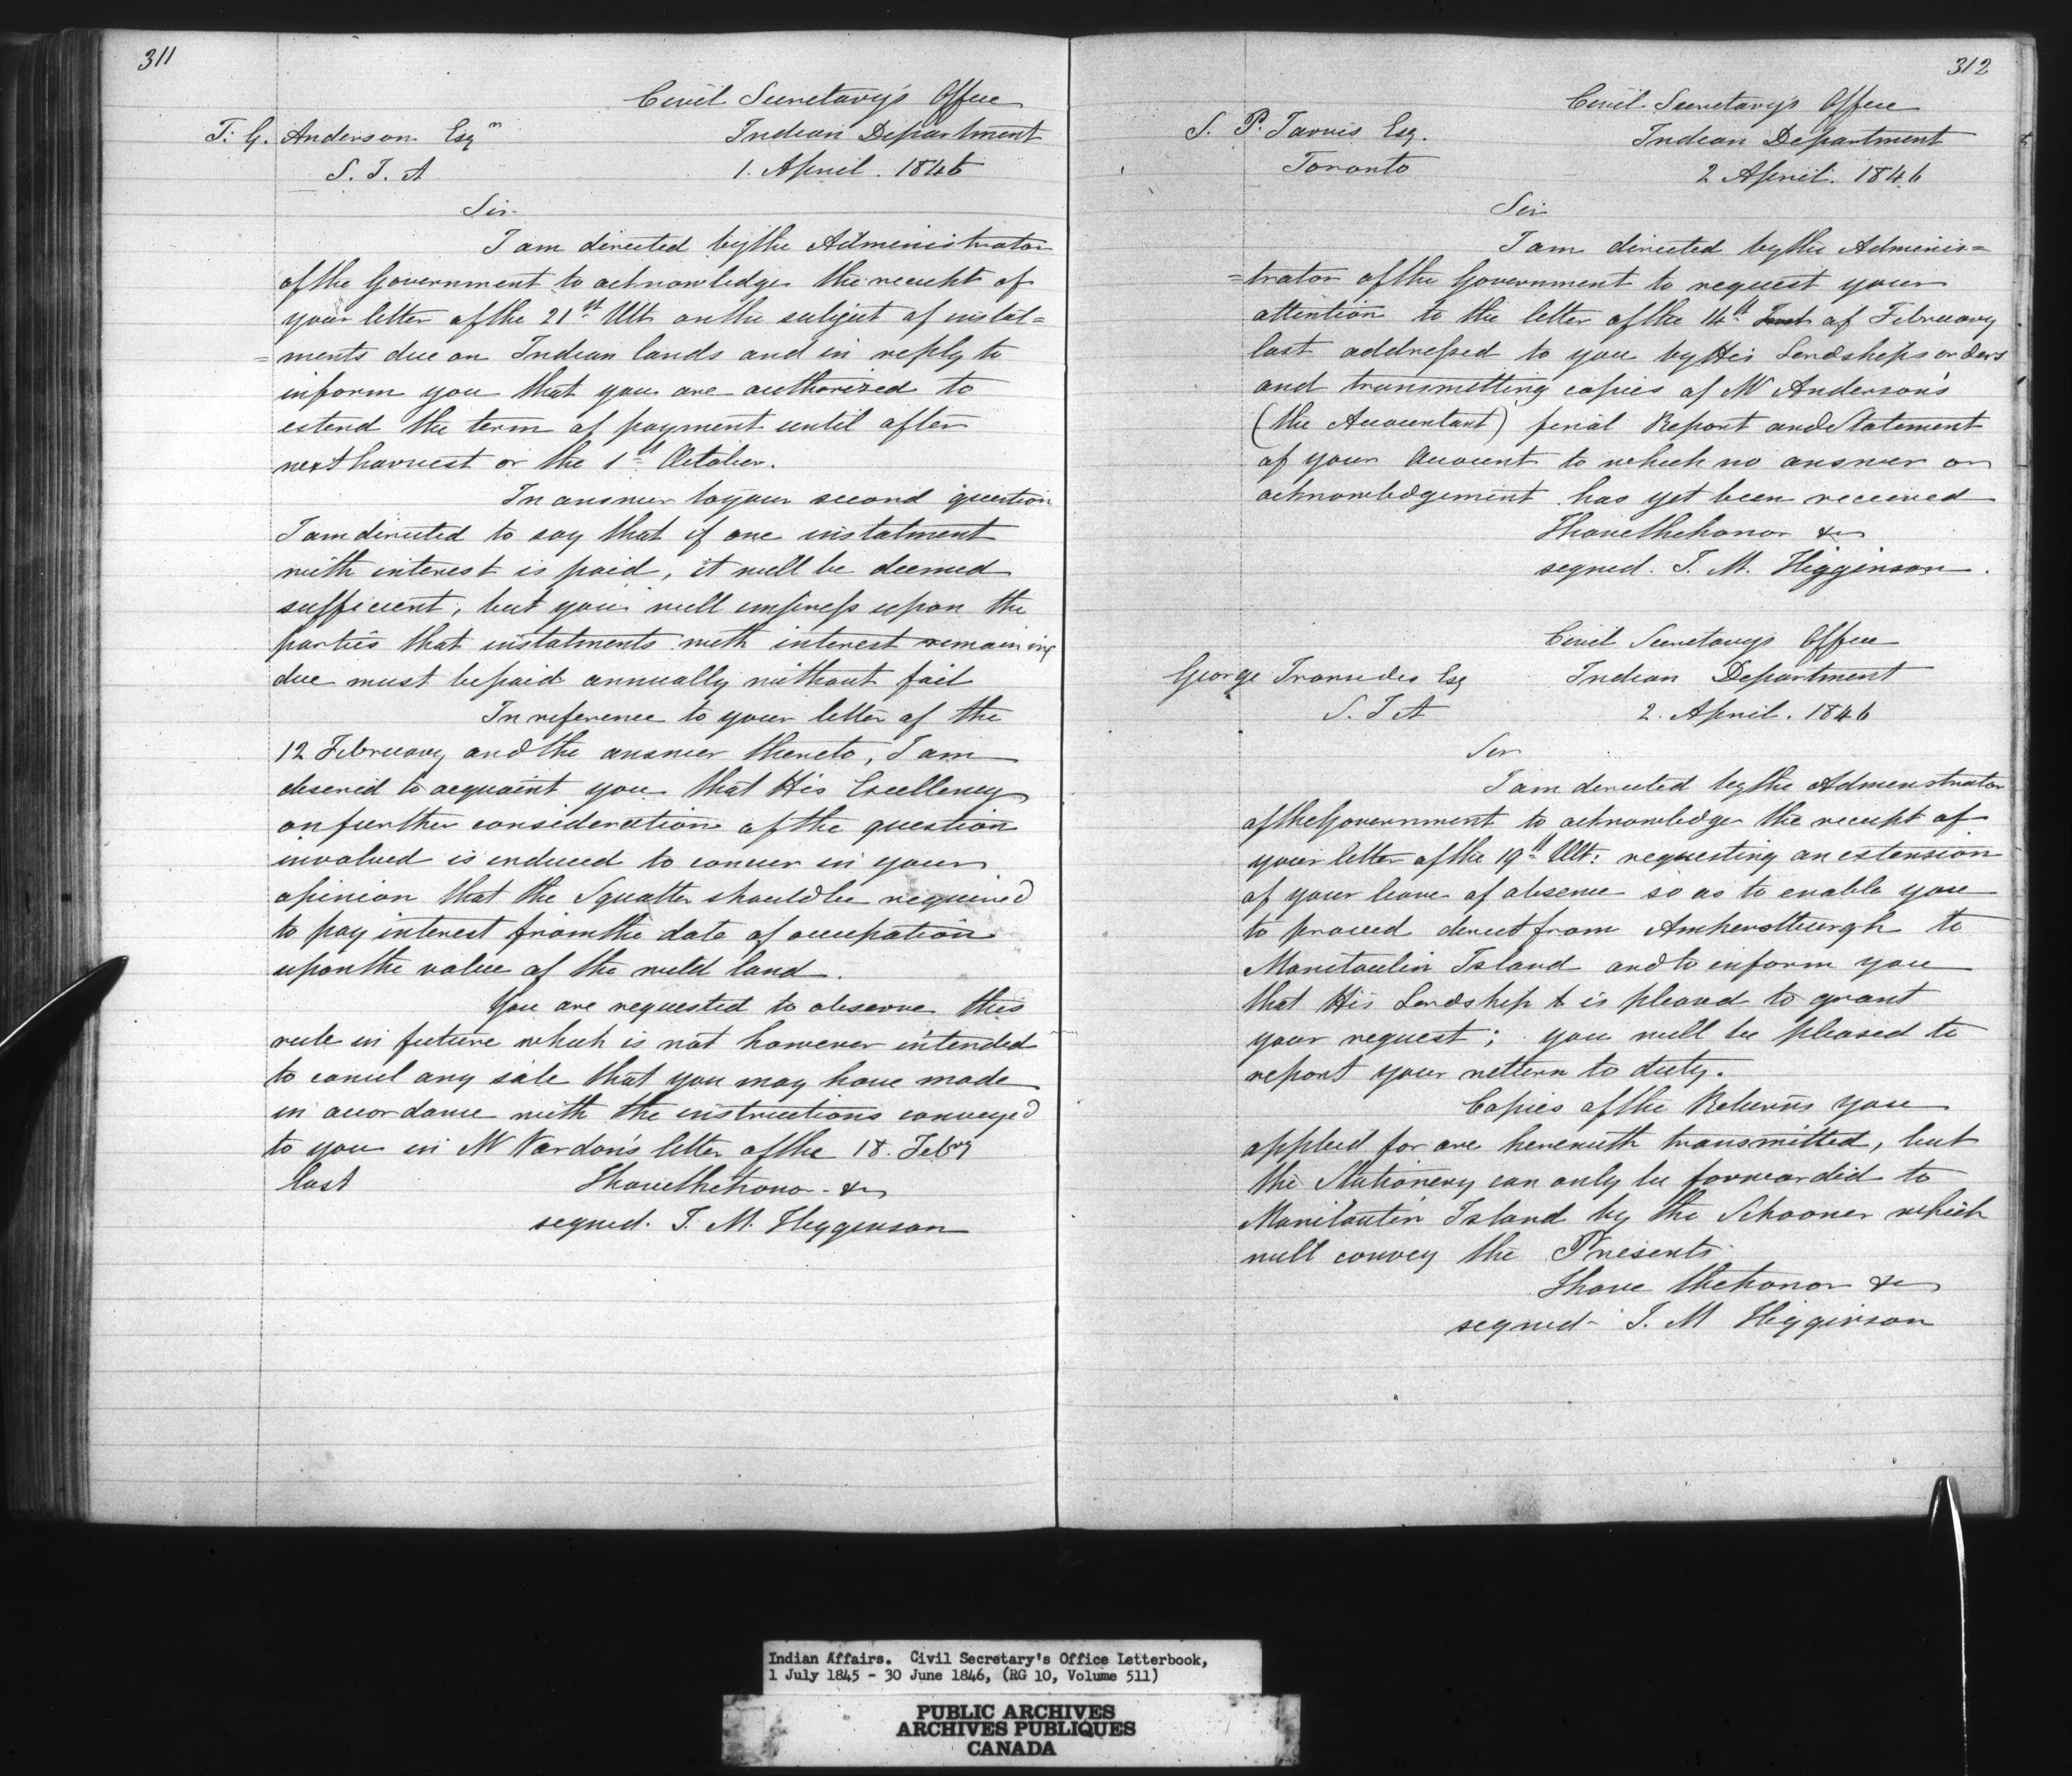 311
Civil Secretary's Office
T. G. Anderson Esqr
Indian Department
S. I. A
1. April. 1846
Sir
I am directed by the Administrator
of the Government to acknowledge the receipt of
your letter of the 21st Ult on the subject of instal=
=ments due on Indian lands and in reply to
inform you that you are authorized to
extend the term of payment until after
next harvest or the 1st October.
In answer to your second question
I am directed to say that if one instalment
with interest is paid, it will be deemed
sufficient, but you will impress upon the
parties that instalments with interest remaining
due must be paid annually without fail
In reference to your letter of the
12 February and the answer thereto, I am
desired to acquaint you that His Excellency
on further consideration of the question
involved is induced to concur in your
opinion that the Squatter should be required
to pay interest from the date of occupation
upon the value of the wild land.
You are requested to observe this
rule in future which is not however intended
to cancel any sale that you may have made
in accordance with the instructions conveyed
to you in Mr Vardon's letter of the 18. Febry
last
I have the honor &c
signed. J. M. Higginson
312
Civil Secretary's Office
S. P. Jarvis Esq.
Indian Department
Toronto
2 April. 1846
Sir
I am directed by the Adminis=
=trator of the Government to request your
attention to the letter of the 14th Inst of February
last addressed to you by His Lordships orders
and transmitting copies of Mr Anderson's
(the Accountant) final Report and Statement
of your Account to which no answer or
acknowledgement has yet been received
I have the honor &c
signed. J. M. Higginson.
Civil Secretarys Office
George Ironsides Esq
Indian Department
S. I A
2. April. 1846
Sir
I am directed by the Administrator
of the Government to acknowledge the receipt of
your letter of the 19th Ult: requesting an extension
of your leave of absence so as to enable you
to proceed direct from Amherstburgh to
Manitoulin Island and to inform you
that His Lordship is pleased to grant
your request; you will be pleased to
report your return to duty.
Copies of the Returns you
applied for are herewith transmitted, but
the Stationery can only be forwarded to
Manitoulin Island by the Schooner which
will convey the Presents
I have the honor &c
signed - J. M Higginson
Indian Affairs. Civil Secretary's Office Letterbook,
1 July 1845 - 30 June 1846, (RG 10, Volume 511)
PUBLIC ARCHIVES
ARCHIVES PUBLIQUES
CANADA